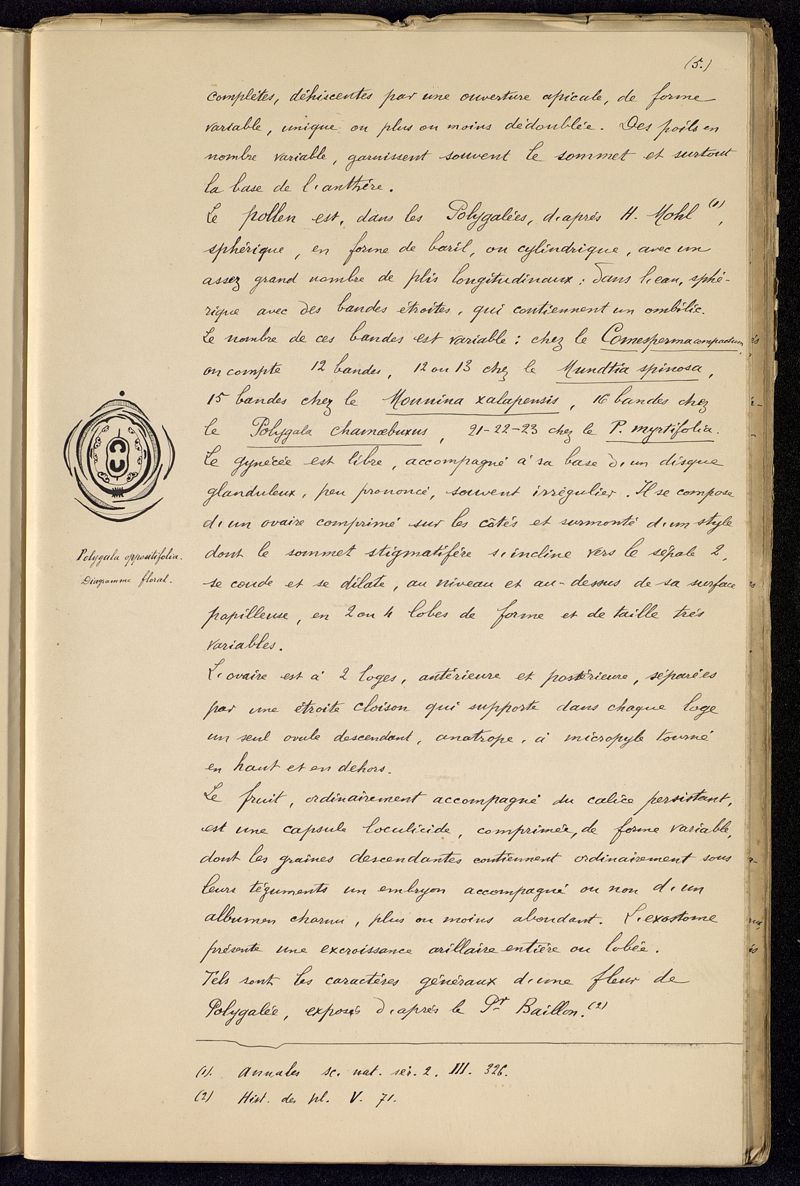 (5.)
complètes, déhiscentes par une ouverture apicale, de forme
variable, unique ou plus ou moins dédoublée. Des poils en
nombre variable, garnissent souvent le sommet et surtout
la base de l'anthère.
Le pollen est, dans les Polygalées, d'après H. Mohl (1),
sphérique, en forme de baril, ou cylindrique, avec un
assez grand nombre de plis longitudinaux; dans l'eau, sphé-
rique avec des bandes étroites, qui contiennent un ombilic.
Le nombre de ces bandes est variable: chez le Comesperma compactum,
on compte 12 bandes, 12 ou 13 chez le Mundtia spinosa,
15 bandes chez le Monnina xalapensis, 16 bandes chez
le Polygala chamœbuxus, 21-22-23 chez le P. myrtifolia.
Le gynécée est libre, accompagné à sa base d'un disque
glanduleux, peu prononcé, souvent irrégulier. Il se compose
d'un ovaire comprimé sur les côtés et surmonté d'un style
dont le sommet stigmatifère s'incline vers le sépale 2,
se coude et se dilate, au niveau et au-dessus de sa surface
papilleuse, en 2 ou 4 lobes de forme et de taille très
variables.
L'ovaire est à 2 loges, antérieure et postérieure, séparées
par une étroite cloison qui supporte dans chaque loge
un seul ovule descendant, anatrope, à micropyle tourné
en haut et en dehors.
Le fruit, ordinairement accompagné du calice persistant,
est une capsule loculicide, comprimée, de forme variable,
dont les graines descendantes contiennent ordinairement sous
leurs téguments un embryon accompagné ou non d'un
albumen charnu, plus ou moins abondant. L'exostome
présente une excroissance arillaire entière ou lobée.
Tels sont les caractères généraux d'une fleur de
Polygalée, exposés d'après le Pr Baillon. (2)
Polygala oppositifolia.
Diagramme floral.
(1). Annales sc. nat. sér. 2. III. 326.
(2) Hist. des pl. V. 71.